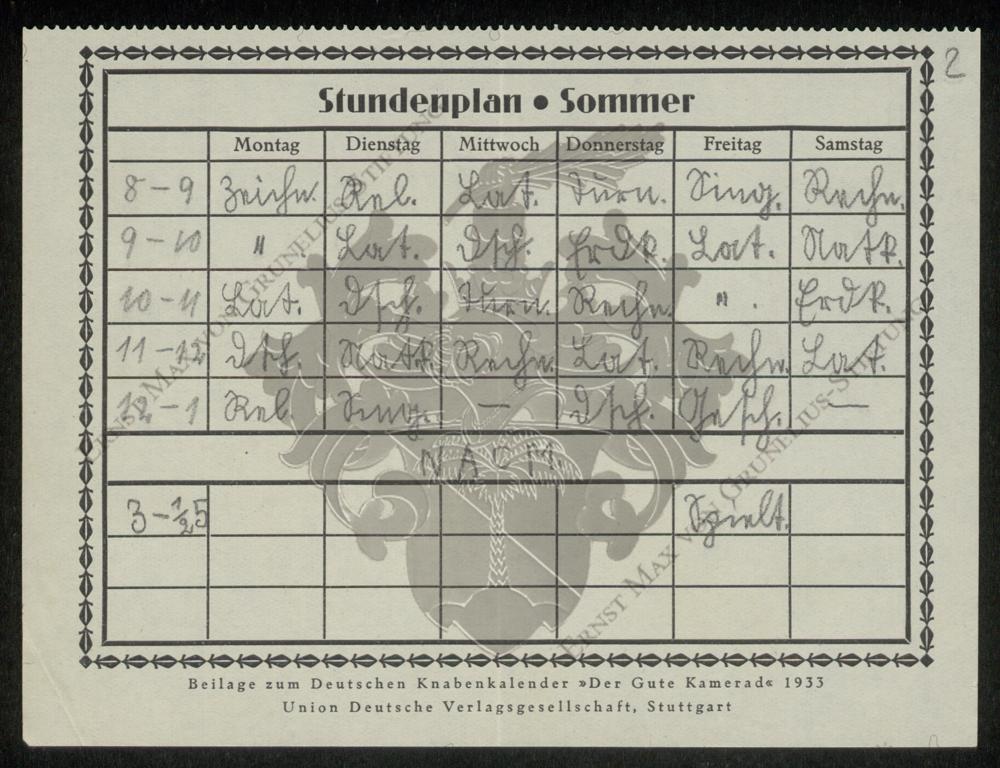 2
Stundenplan • Sommer
Montag Dienstag Mittwoch Donnerstag Freitag Samstag
8 – 9 Zeichn. Rel. Lat. Turn. Sing. Rechn.
9 – 10 " Lat. Dtsch. Erdk. Lat. Natk.
10 – 11 Lat. Dtsch. Turn. Rechn. " . Erdk.
11 – 12 Dtsch. Natk. Rechn. Lat. Rechn. Lat.
12 – 1 Rel. Sing. — Dtsch. Gesch. —
NACHM.
3 – ½5 Spielt.
Beilage zum Deutschen Knabenkalender »Der Gute Kamerad« 1933
Union Deutsche Verlagsgesellschaft, Stuttgart
ERNST MAX VON GRUNELIUS-STIFTUNG
ERNST MAX VON GRUNELIUS-STIFTUNG